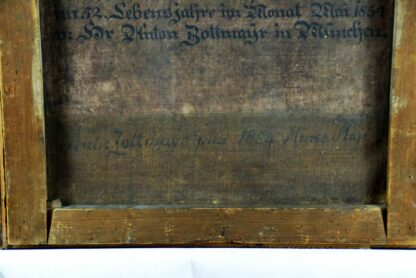 im 52. Lebensjahre im Monat Mai 1854
v: Hr Anton Zottmayr in München.
Ant: Zottmayr pinx 1854 Monse Maje